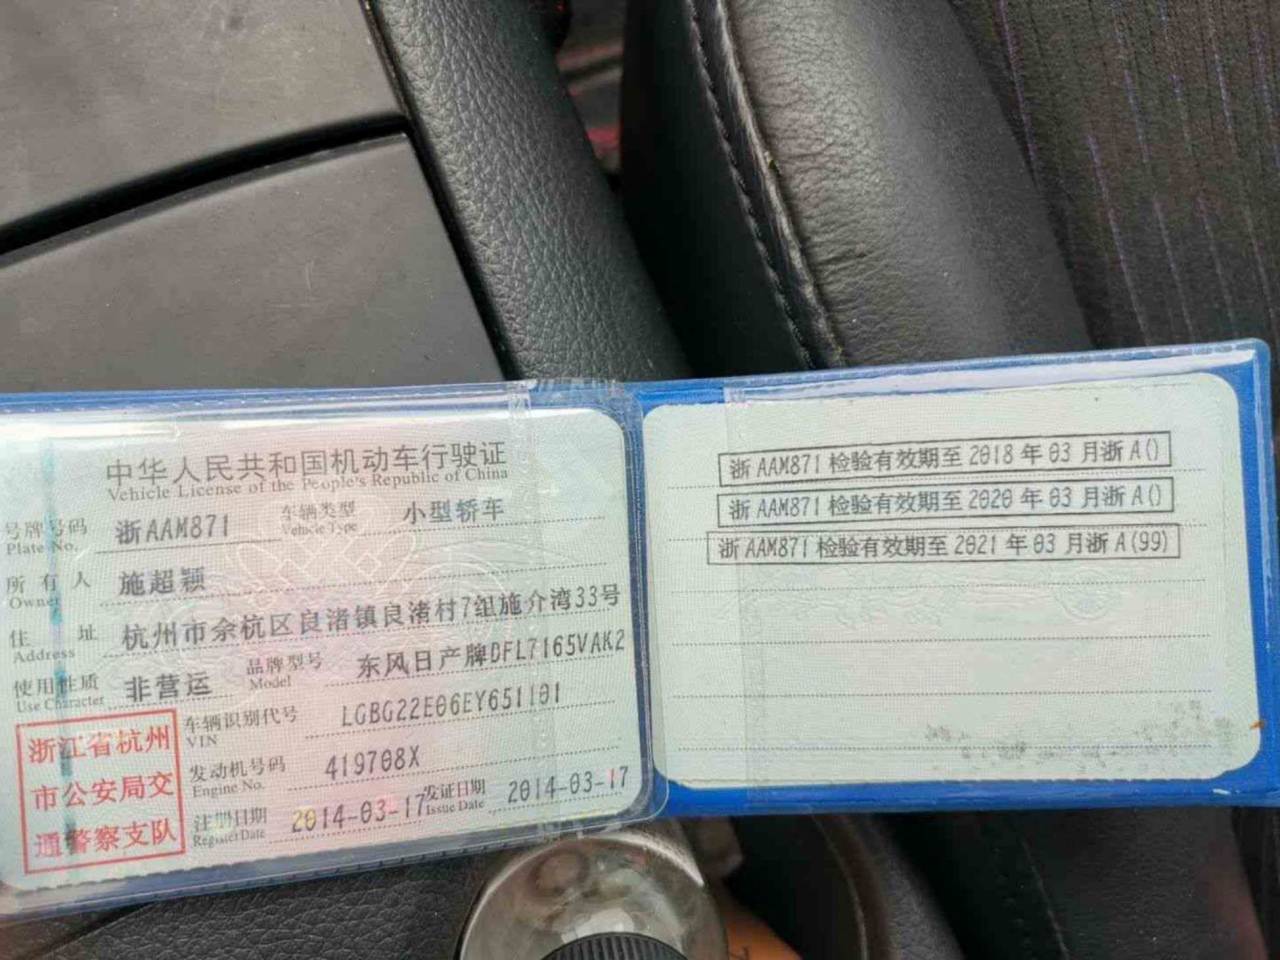 中华人民共和国机动车行驶证
Vehicle License of the People's Republic of China
号牌号码 浙AAM871 车辆类型 小型轿车
Plate No. Vehicle Type
所有人 施超颖
Owner
住址 杭州市余杭区良渚镇良渚村7组施介湾33号
Address
使用性质 非营运 品牌型号 东风日产牌DFL7165VAK2
Use Character Model
车辆识别代号 LGBG22E06EY651101
VIN
发动机号码 419708X
Engine No.
注册日期 2014-03-17 发证日期 2014-03-17
Register Date Issue Date
浙江省杭州
市公安局交
通警察支队
浙AAM871检验有效期至2018年03月浙A()
浙AAM871检验有效期至2020年03月浙A()
浙AAM871检验有效期至2021年03月浙A(99)